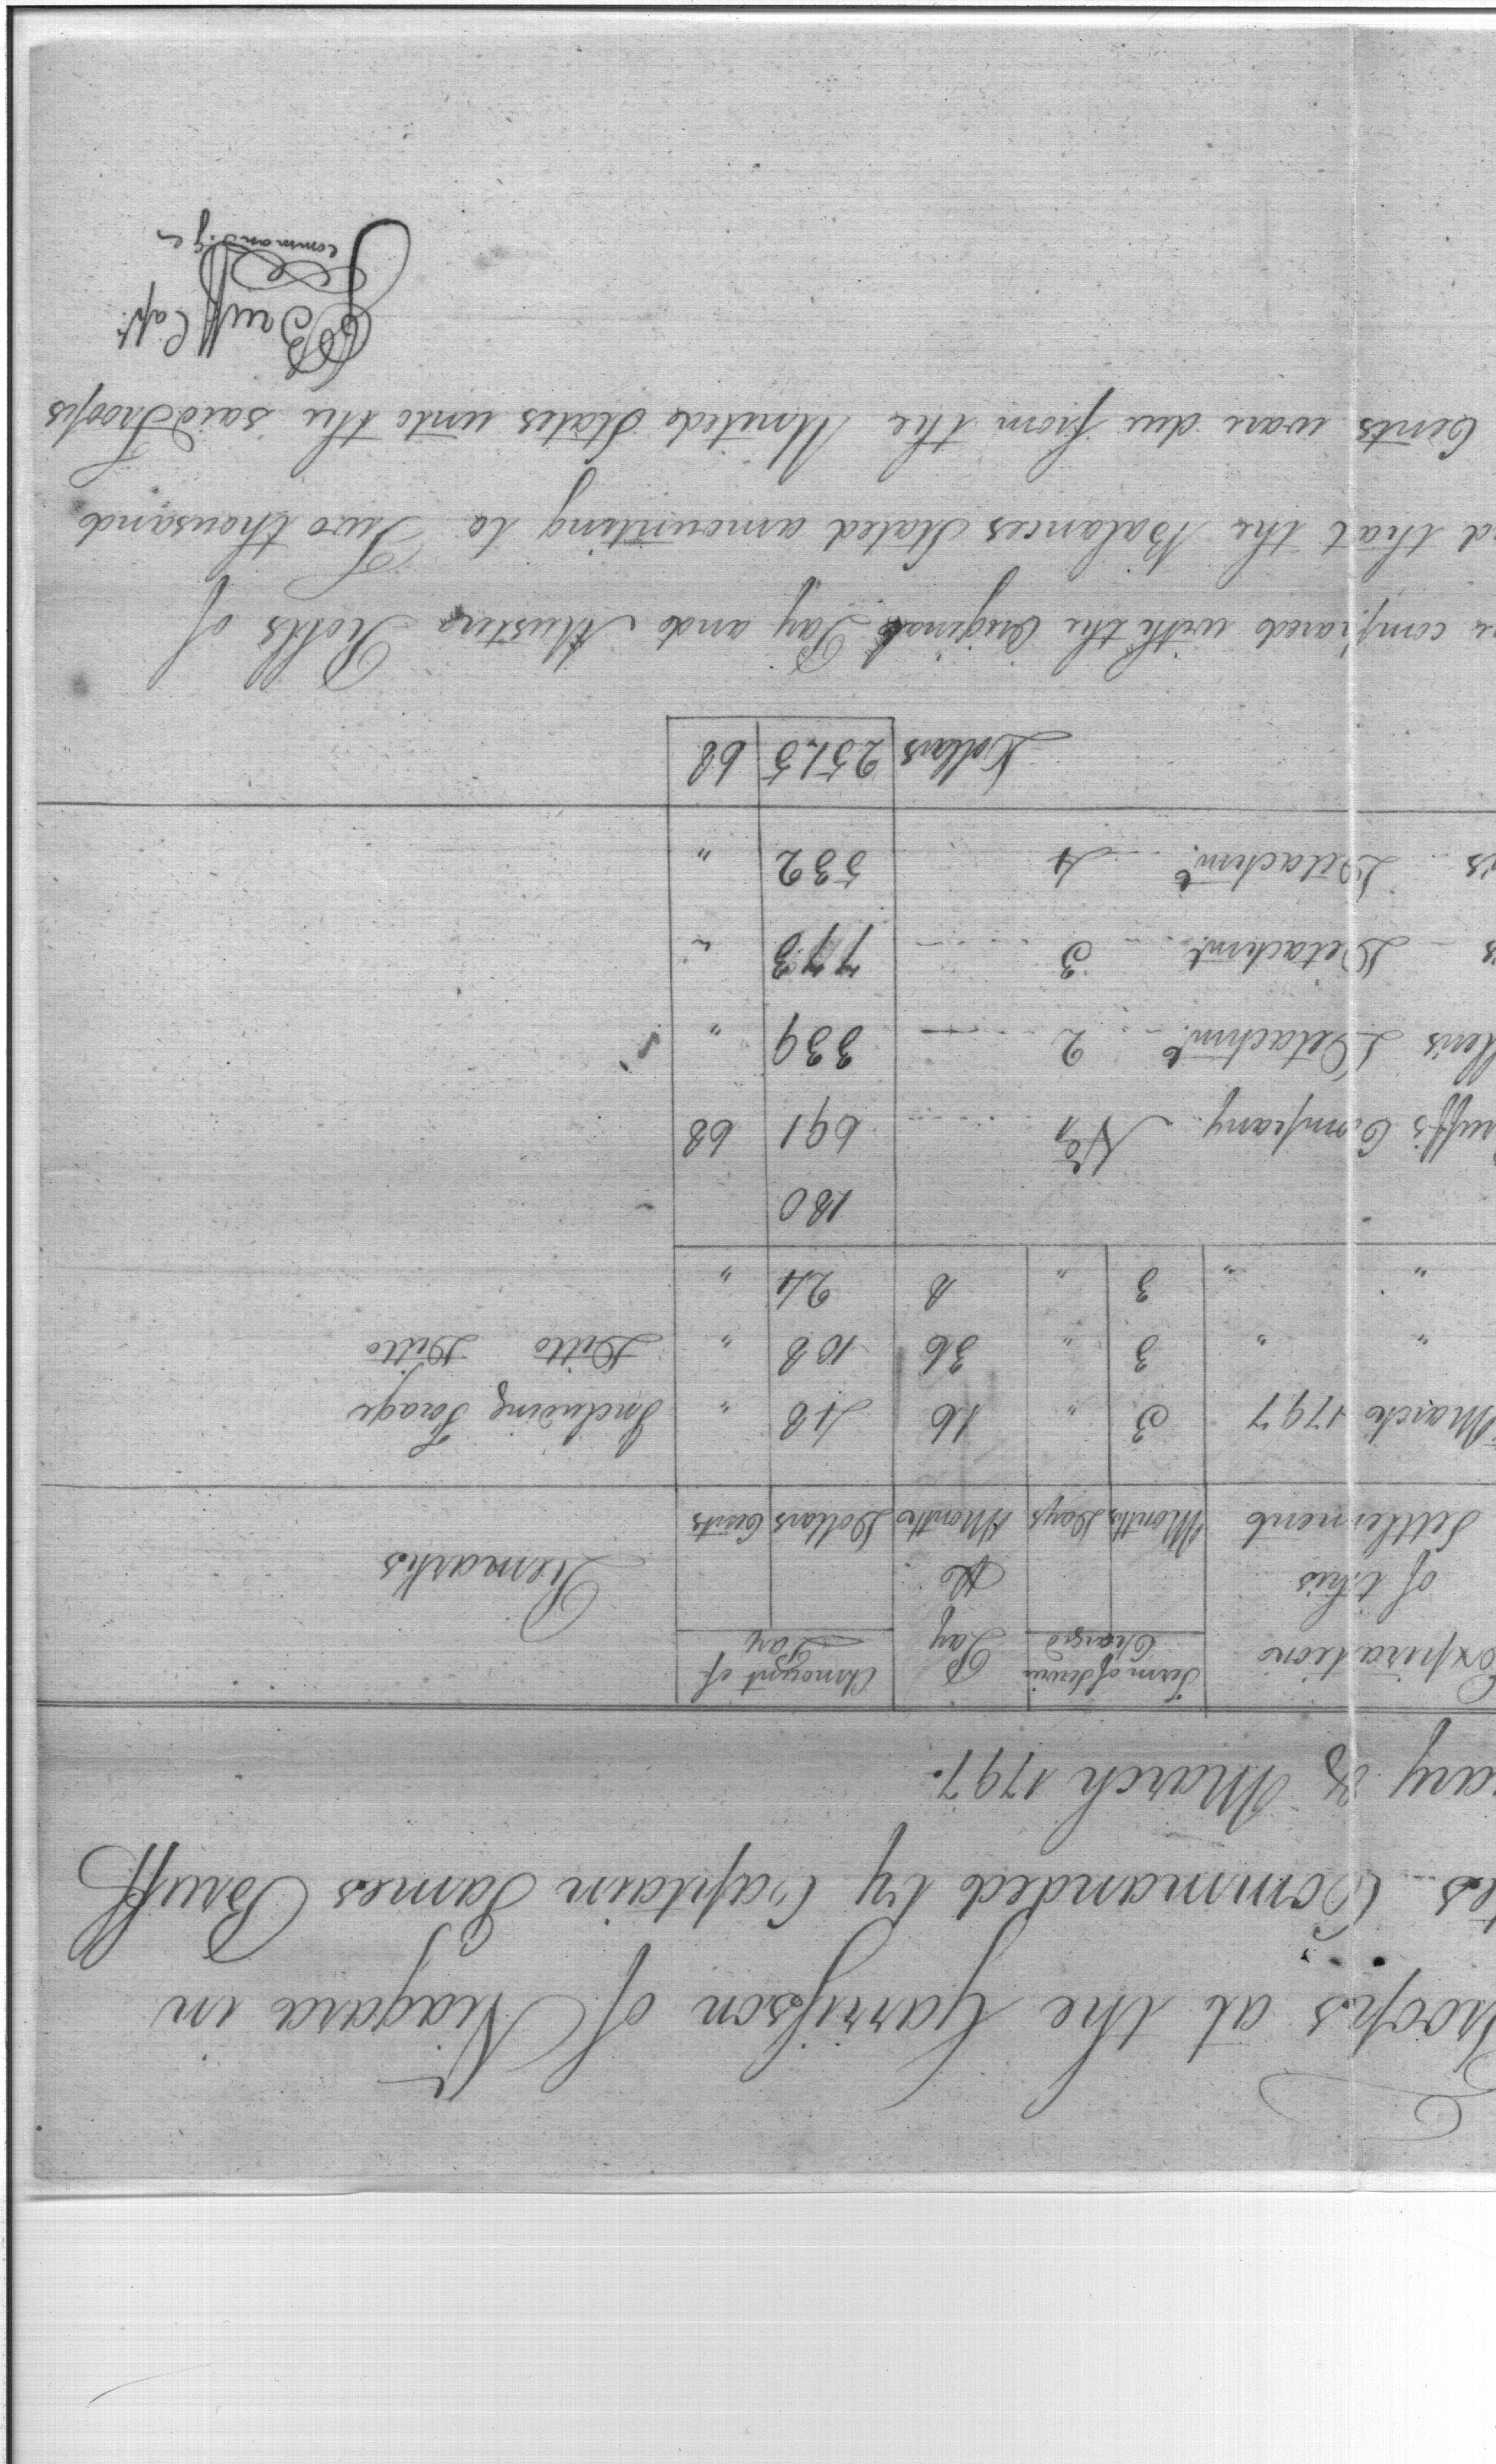 Troops at the Garrison of Niagara in
tes Commanded by Captain James Bruff
ary & March 1797.
Expiration of this Settlement | Term of Service Charged Months Days | Pay ⅌ Month | Amount of Pay Dollars Cents | Remarks
March 1797 | 3 | " | 16 | 48 | " | Including Forage
" " | 3 | " | 36 | 108 | " | Ditto Ditto
" " | 3 | " | 8 | 24 | "
180
uff's Company No 1 691 68
Detachmt. 2 339 "
s Detachmt. 3 773 "
's Detachmt. 4 532 "
Dollars 2515 68
compared with the Original Pay and Muster Rolls of
d that the Balances Stated amounting to Two thousand
Cents ware due from the United States unto the said Troops
Bruff Capt.
Commandg